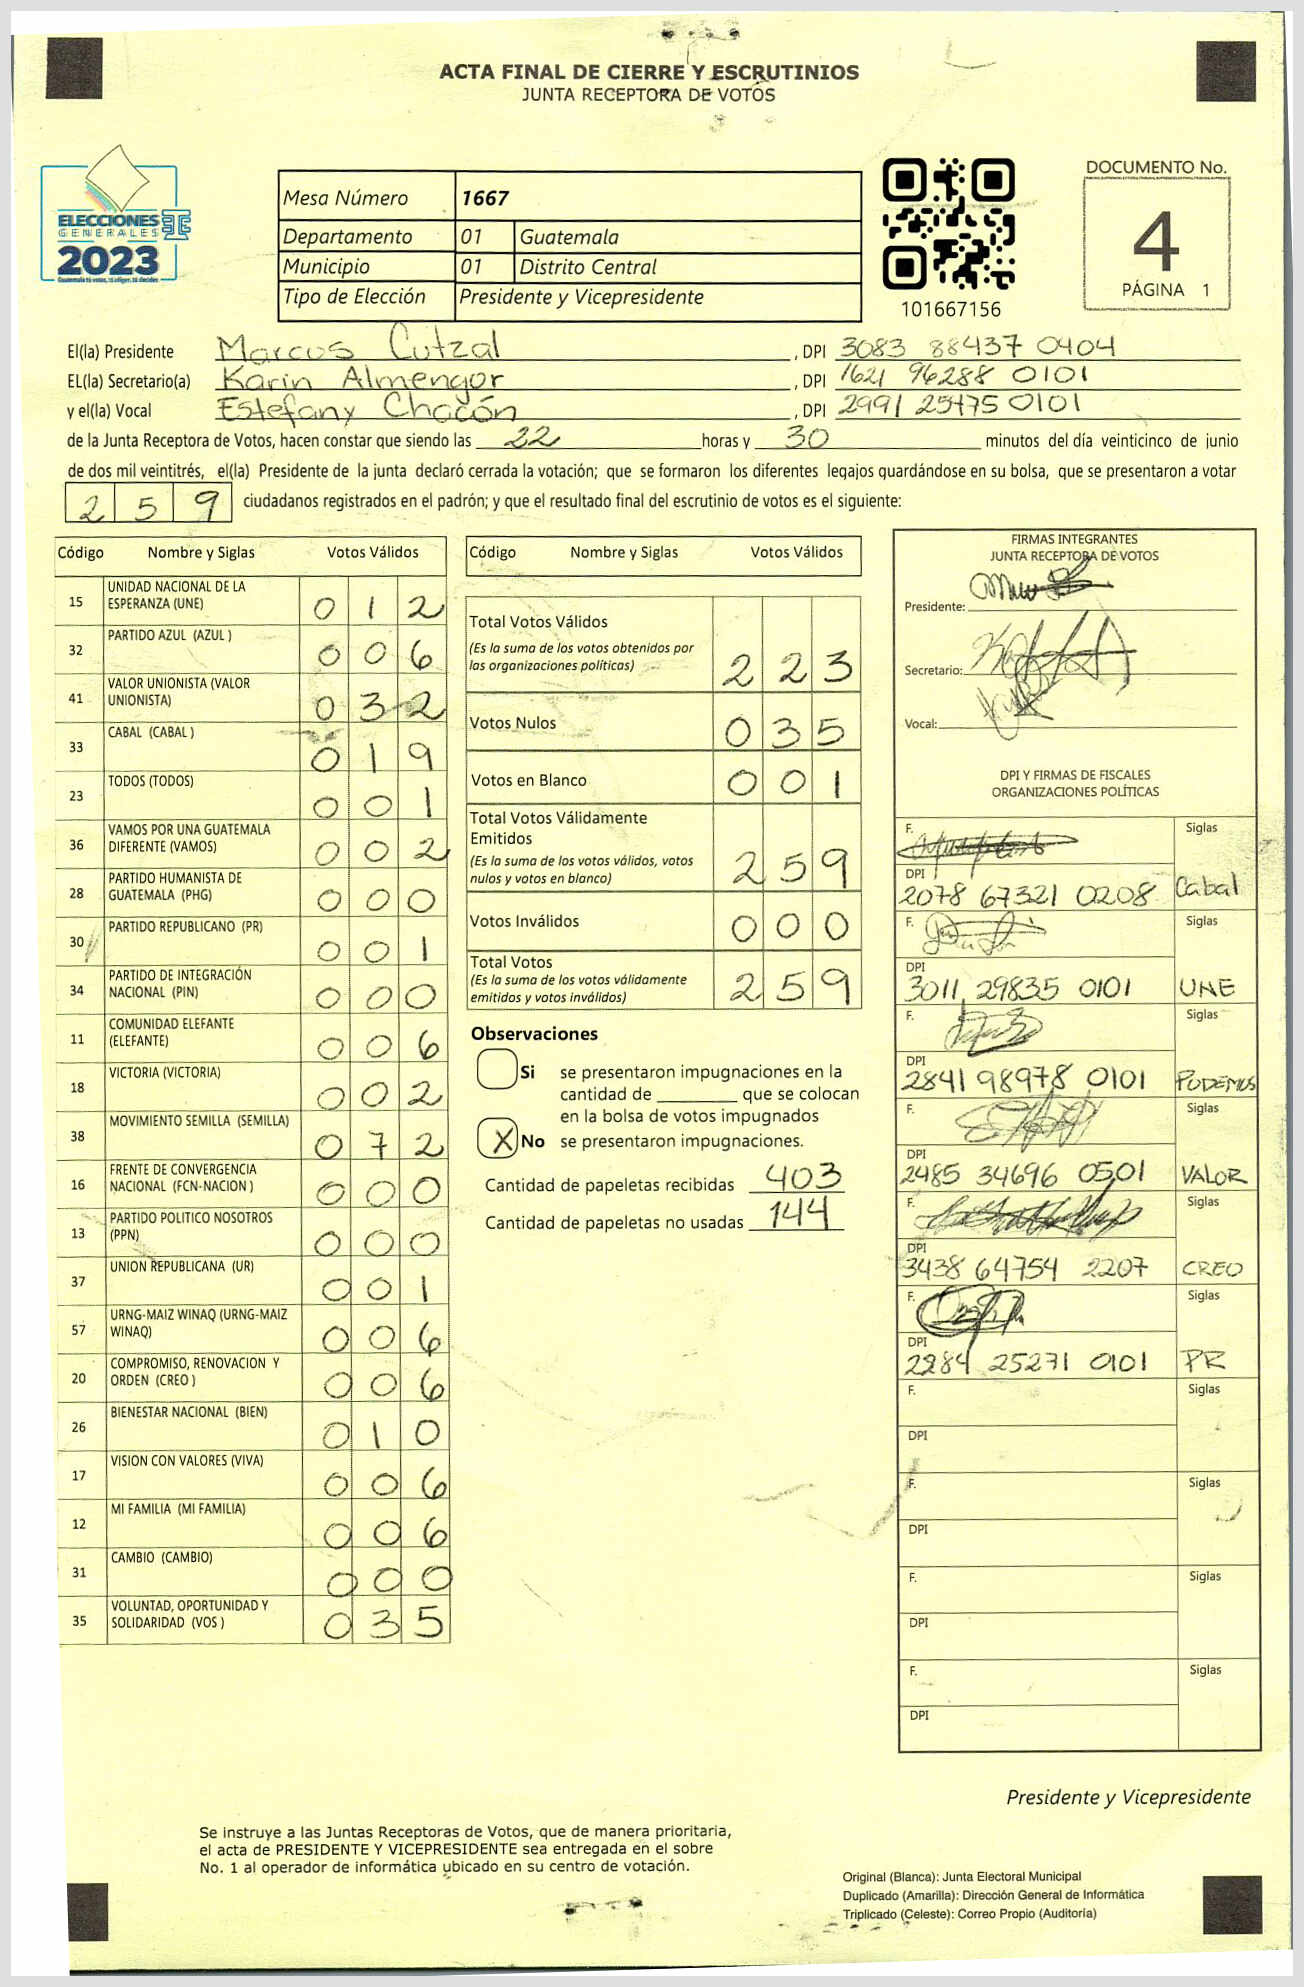 ACTA FINAL DE CIERRE Y ESCRUTINIOS
JUNTA RECEPTORA DE VOTOS
ELECCIONES
GENERALES
2023
Mesa Número 1667
Departamento 01 Guatemala
Municipio 01 Distrito Central
Tipo de Elección Presidente y Vicepresidente
101667156
DOCUMENTO No.
4
PÁGINA 1
El(la) Presidente Marcos Cutzal , DPI 3083 88437 0404
EL(la) Secretario(a) Karin Almengor , DPI 1621 96288 0101
y el(la) Vocal Estefany Chacón , DPI 2991 25475 0101
de la Junta Receptora de Votos, hacen constar que siendo las 22 horas y 30 minutos del día veinticinco de junio
de dos mil veintitrés, el(la) Presidente de la junta declaró cerrada la votación; que se formaron los diferentes legajos quardándose en su bolsa, que se presentaron a votar
2 5 9 ciudadanos registrados en el padrón; y que el resultado final del escrutinio de votos es el siguiente:
Código Nombre y Siglas Votos Válidos
15 UNIDAD NACIONAL DE LA
ESPERANZA (UNE) 0 1 2
32 PARTIDO AZUL (AZUL ) 0 0 6
41 VALOR UNIONISTA (VALOR
UNIONISTA) 0 3 2
33 CABAL (CABAL ) 0 1 9
23 TODOS (TODOS) 0 0 1
36 VAMOS POR UNA GUATEMALA
DIFERENTE (VAMOS) 0 0 2
28 PARTIDO HUMANISTA DE
GUATEMALA (PHG) 0 0 0
30 PARTIDO REPUBLICANO (PR) 0 0 1
34 PARTIDO DE INTEGRACIÓN
NACIONAL (PIN) 0 0 0
11 COMUNIDAD ELEFANTE
(ELEFANTE) 0 0 6
18 VICTORIA (VICTORIA) 0 0 2
38 MOVIMIENTO SEMILLA (SEMILLA) 0 7 2
16 FRENTE DE CONVERGENCIA
NACIONAL (FCN-NACION ) 0 0 0
13 PARTIDO POLITICO NOSOTROS
(PPN) 0 0 0
37 UNION REPUBLICANA (UR) 0 0 1
57 URNG-MAIZ WINAQ (URNG-MAIZ
WINAQ) 0 0 6
20 COMPROMISO, RENOVACION Y
ORDEN (CREO ) 0 0 6
26 BIENESTAR NACIONAL (BIEN) 0 1 0
17 VISION CON VALORES (VIVA) 0 0 6
12 MI FAMILIA (MI FAMILIA) 0 0 6
31 CAMBIO (CAMBIO) 0 0 0
35 VOLUNTAD, OPORTUNIDAD Y
SOLIDARIDAD (VOS ) 0 3 5
Código Nombre y Siglas Votos Válidos
Total Votos Válidos
(Es la suma de los votos obtenidos por
las organizaciones políticas) 2 2 3
Votos Nulos 0 3 5
Votos en Blanco 0 0 1
Total Votos Válidamente
Emitidos
(Es la suma de los votos válidos, votos
nulos y votos en blanco) 2 5 9
Votos Inválidos 0 0 0
Total Votos
(Es la suma de los votos válidamente
emitidos y votos inválidos) 2 5 9
Observaciones
Si se presentaron impugnaciones en la
cantidad de ________ que se colocan
en la bolsa de votos impugnados
X No se presentaron impugnaciones.
Cantidad de papeletas recibidas 403
Cantidad de papeletas no usadas 144
FIRMAS INTEGRANTES
JUNTA RECEPTORA DE VOTOS
Presidente:
Secretario:
Vocal:
DPI Y FIRMAS DE FISCALES
ORGANIZACIONES POLÍTICAS
F. Siglas
DPI
2078 67321 0208 Cabal
F. Siglas
DPI
3011 29835 0101 UNE
F. Siglas
DPI
2841 98978 0101 PODEMOS
F. Siglas
DPI
2485 34696 0501 VALOR
F. Siglas
DPI
3438 64754 2207 CREO
F. Siglas
DPI
2284 25271 0101 PR
F. Siglas
DPI
F. Siglas
DPI
F. Siglas
DPI
F. Siglas
DPI
Presidente y Vicepresidente
Se instruye a las Juntas Receptoras de Votos, que de manera prioritaria,
el acta de PRESIDENTE Y VICEPRESIDENTE sea entregada en el sobre
No. 1 al operador de informática ubicado en su centro de votación.
Original (Blanca): Junta Electoral Municipal
Duplicado (Amarilla): Dirección General de Informática
Triplicado (Celeste): Correo Propio (Auditoría)